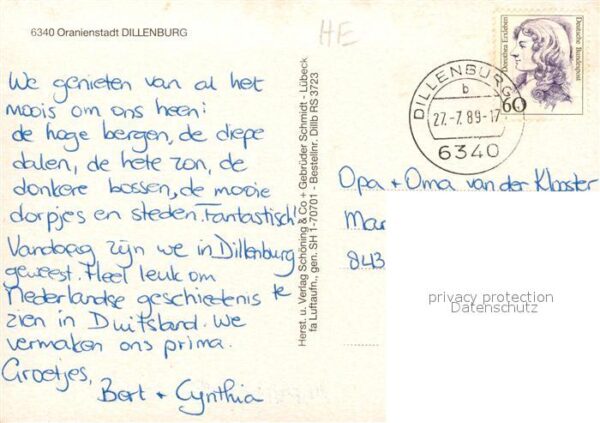 6340 Oranienstadt DILLENBURG
HE
We genieten van al het
moois om ons heen:
de hoge bergen, de diepe
dalen, de hete zon, de
donkere bossen, de mooie
dorpjes en steden. Fantastisch!
Vandaag zijn we in Dillenburg
geweest. Heel leuk om
Nederlandse geschiedenis te
zien in Duitsland. We
vermaken ons prima.
Groetjes,
Bert + Cynthia
Herst. u. Verlag Schöning & Co + Gebrüder Schmidt - Lübeck
fa Luftaufn., gen. SH 1-70701 - Bestellnr. Dillb RS 3723
Dorothea Erxleben
Deutsche Bundespost
60
DILLENBURG
b
27.-7.89-17
6340
Opa + Oma van der Klooster
Mar
843
privacy protection
Datenschutz